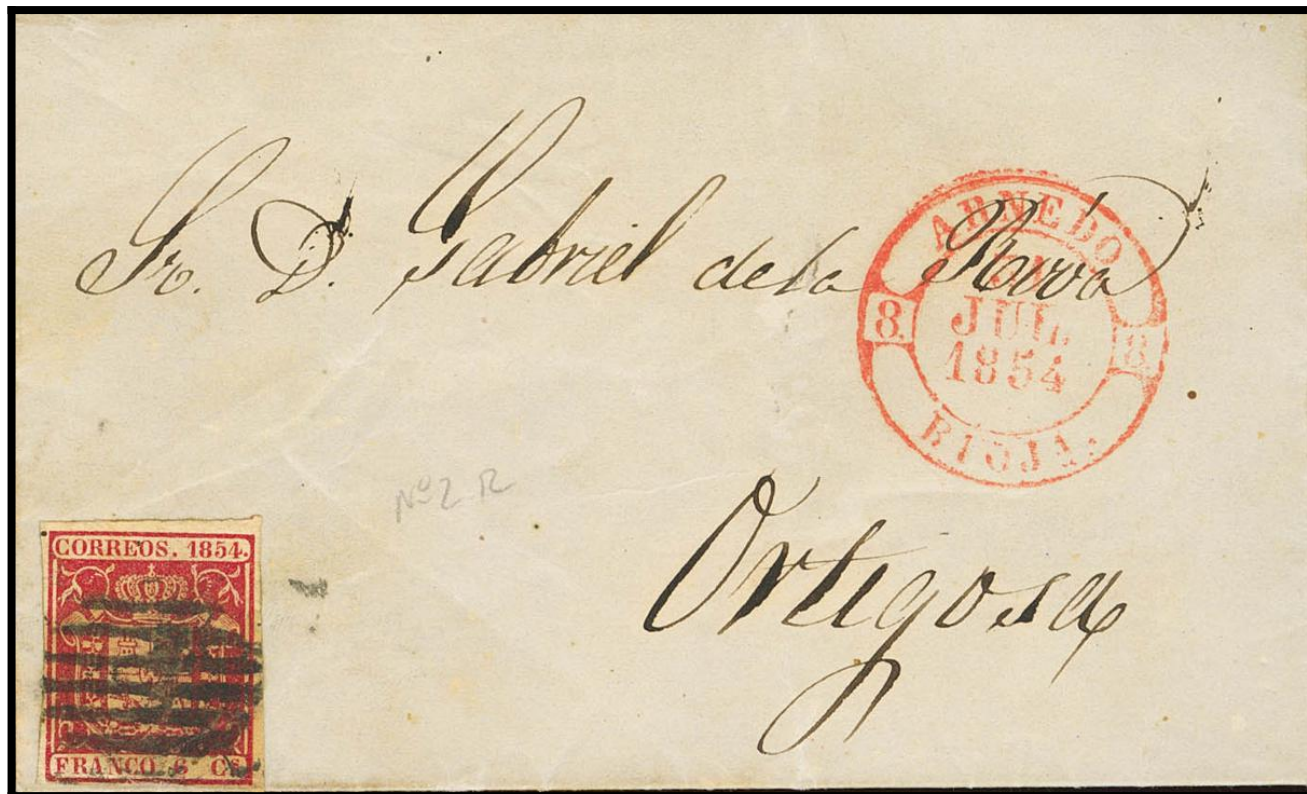 Sr. D. Gabriel de la Riva
ARNEDO
8. JUL. 8.
1854
RIOJA.
Nº 2 R
Ortigosa
CORREOS. 1854.
FRANCO. 6 Cs.